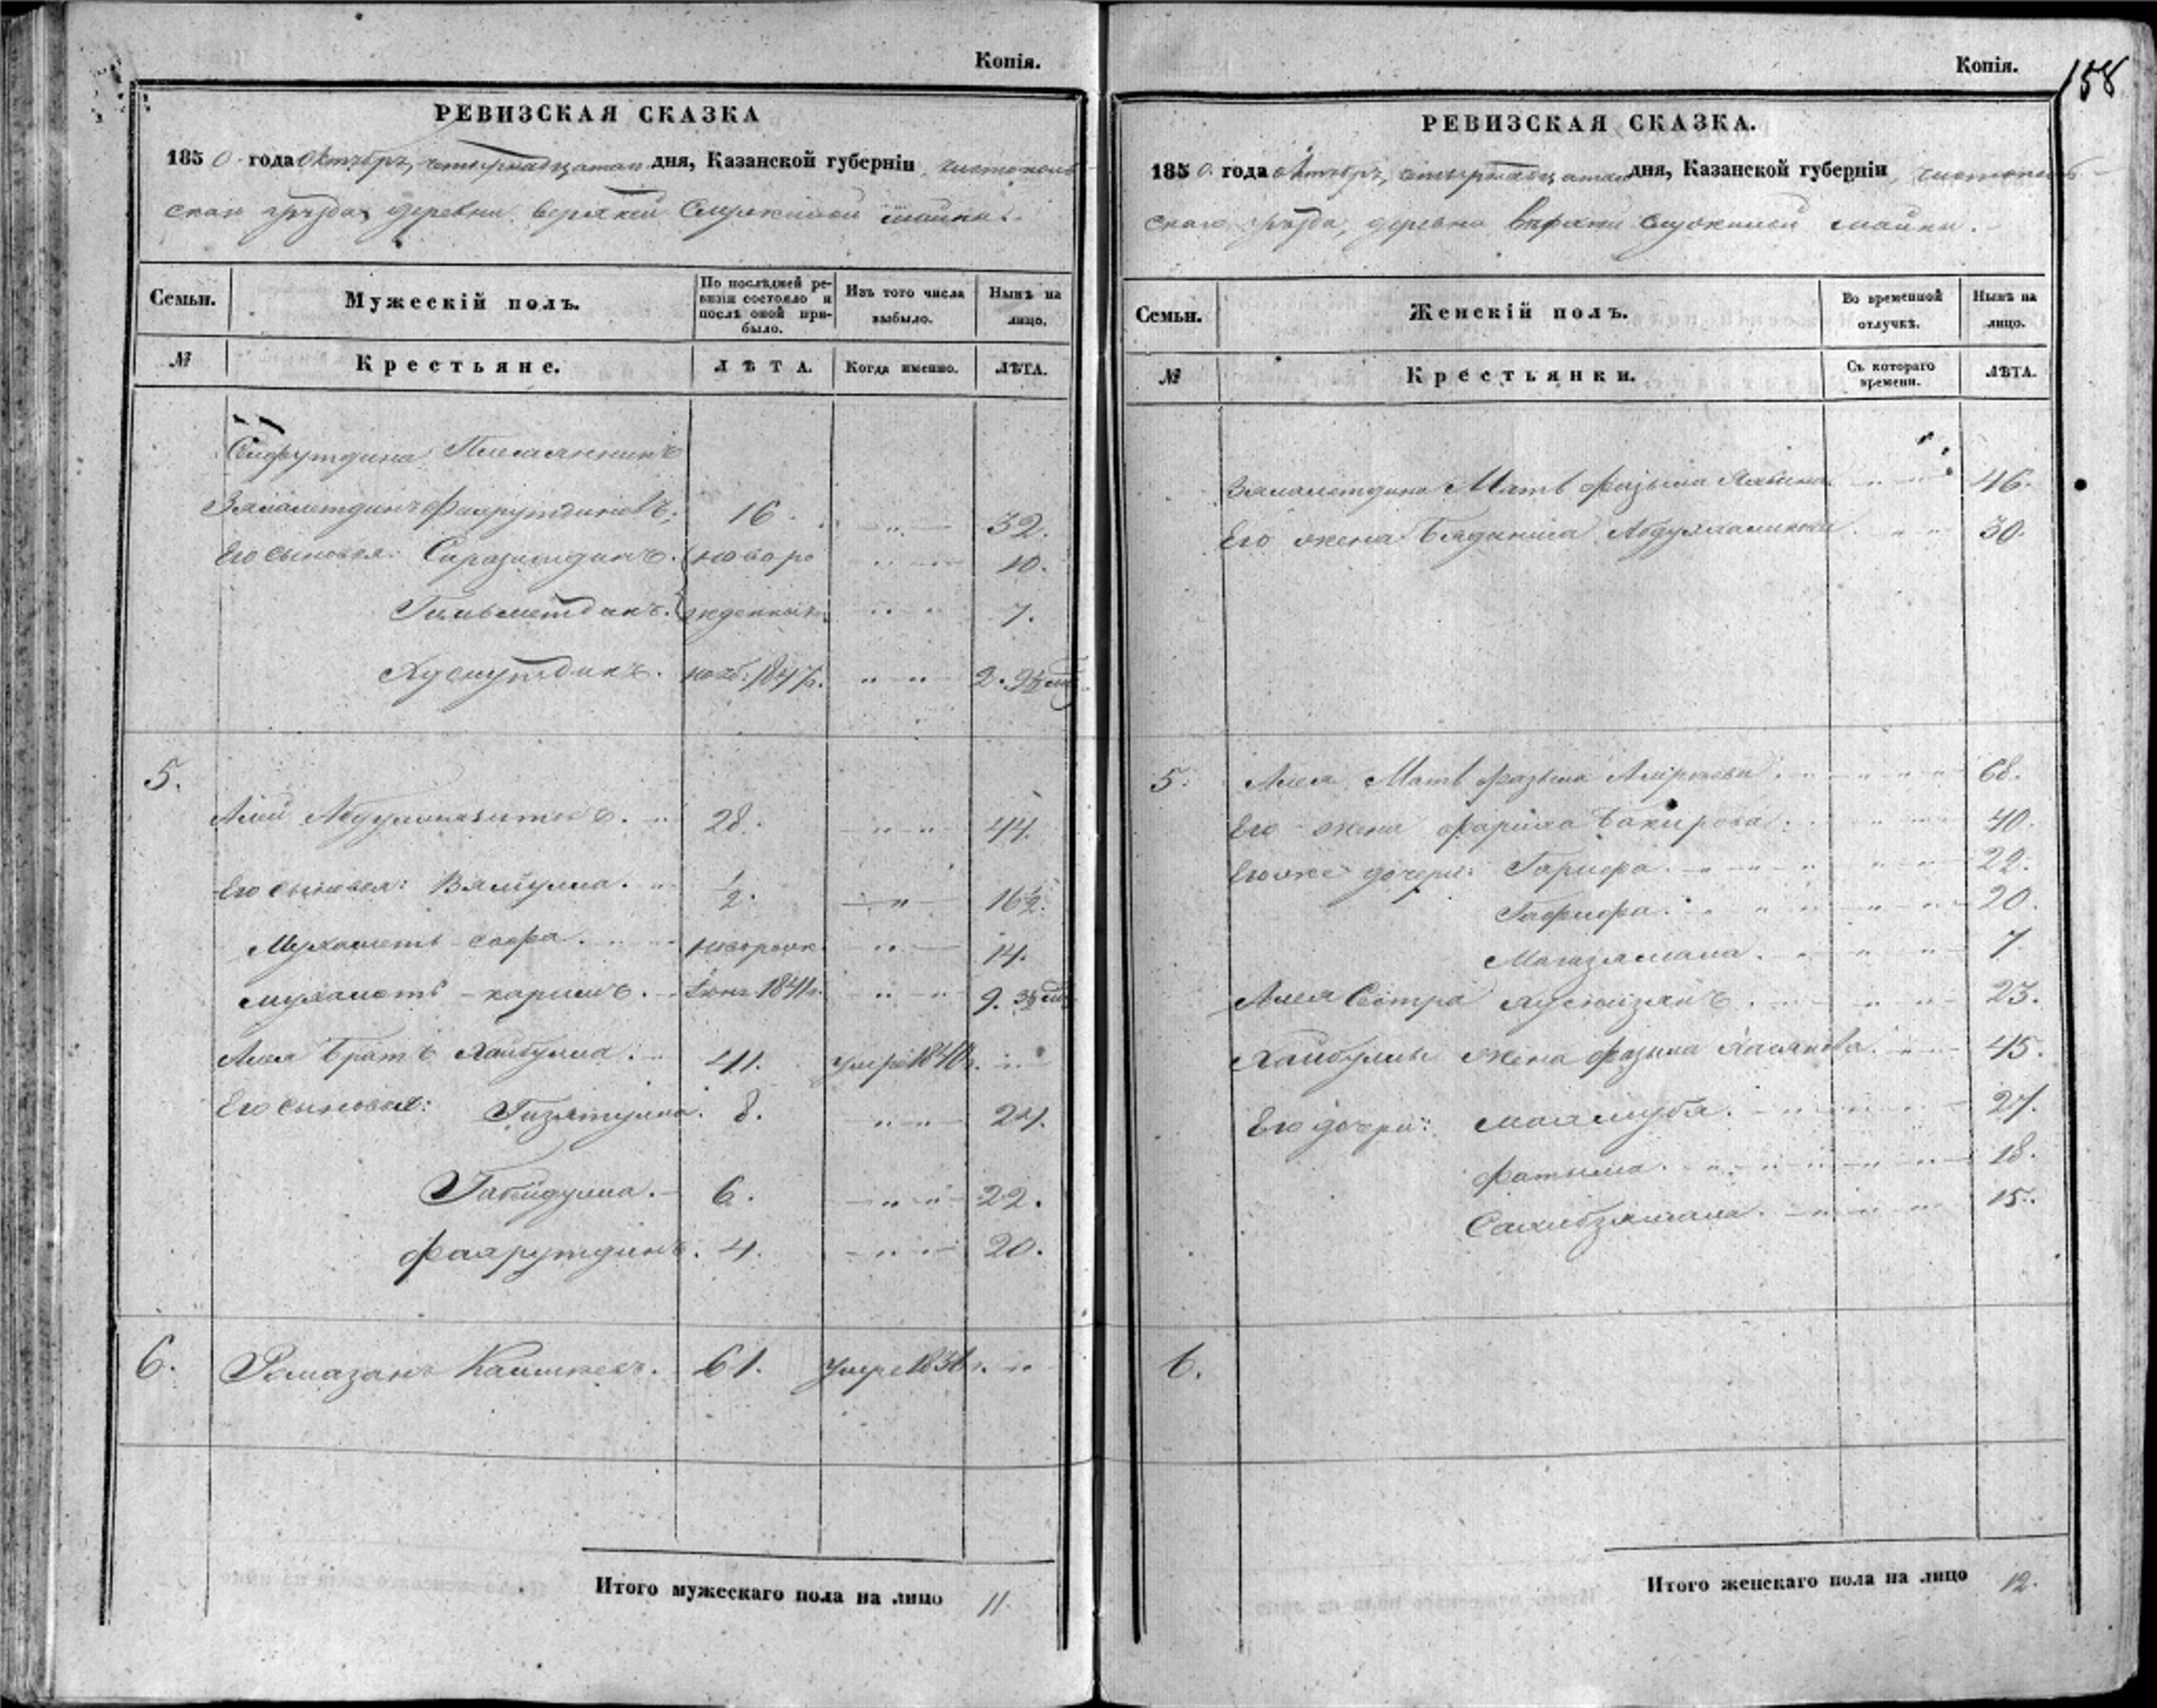 Копія.
РЕВИЗСКАЯ СКАЗКА
1850 года Октября четырнадцатаго дня, Казанской губерніи, чистополь-
скаго уѣзда деревни верхней майны.
Семьи.
Мужескій полъ.
По послѣдней ре-
визіи состояло и
послѣ оной при-
было.
Изъ того числа
выбыло.
Нынѣ на
лицо.
№
Крестьяне.
ЛѢТА.
Когда именно.
ЛѢТА.
Сайфутдина Племянникъ
Зямалетдинъ Фахрутдиновъ. 16. 32.
Его сыновья: Саразитдинъ. новоро 10.
Гильметдинъ. жденныхъ 7.
Хуснутдинъ. нояб. 1847г. 2.
5.
Алій 28. 44.
Его сыновья: Вялиулла. ½. 16½.
Мухаметъ-сафа. новорож. 14.
мухаметъ-каримъ. Іюня 1841г. 9.
Алея Братъ Хайбулла. 41. умре 1840г.
Его сыновья: Гизятулла. 8. 24.
Габейдулла. 6. 22.
Фахрутдинъ. 4. 20.
6. Рамазанъ 61. умре
Итого мужескаго пола на лицо 11.
Копія.
158
РЕВИЗСКАЯ СКАЗКА.
1850. года октября, четырнадцатаго дня, Казанской губерніи, чистополь-
скаго уѣзда, деревни майны.
Семьи.
Женскій полъ.
Во временной
отлучкѣ.
Нынѣ на
лицо.
№
Крестьянки.
Съ котораго
времени.
ЛѢТА.
Зямалетдина Мать фазыла 46.
Его жена Бядигиса 30.
5. Алея Мать фазыла 68.
Его жена фариха Бакирова. 40.
Его же дочери: Гарифа. 22.
Гафифа. 20.
Магизямала. 7.
Алея Сестра 23.
Хайбуллы жена фазыла 45.
Его дочери: 27.
Фатыма. 18.
Сахибзямала. 15.
6.
Итого женскаго пола на лицо 12.